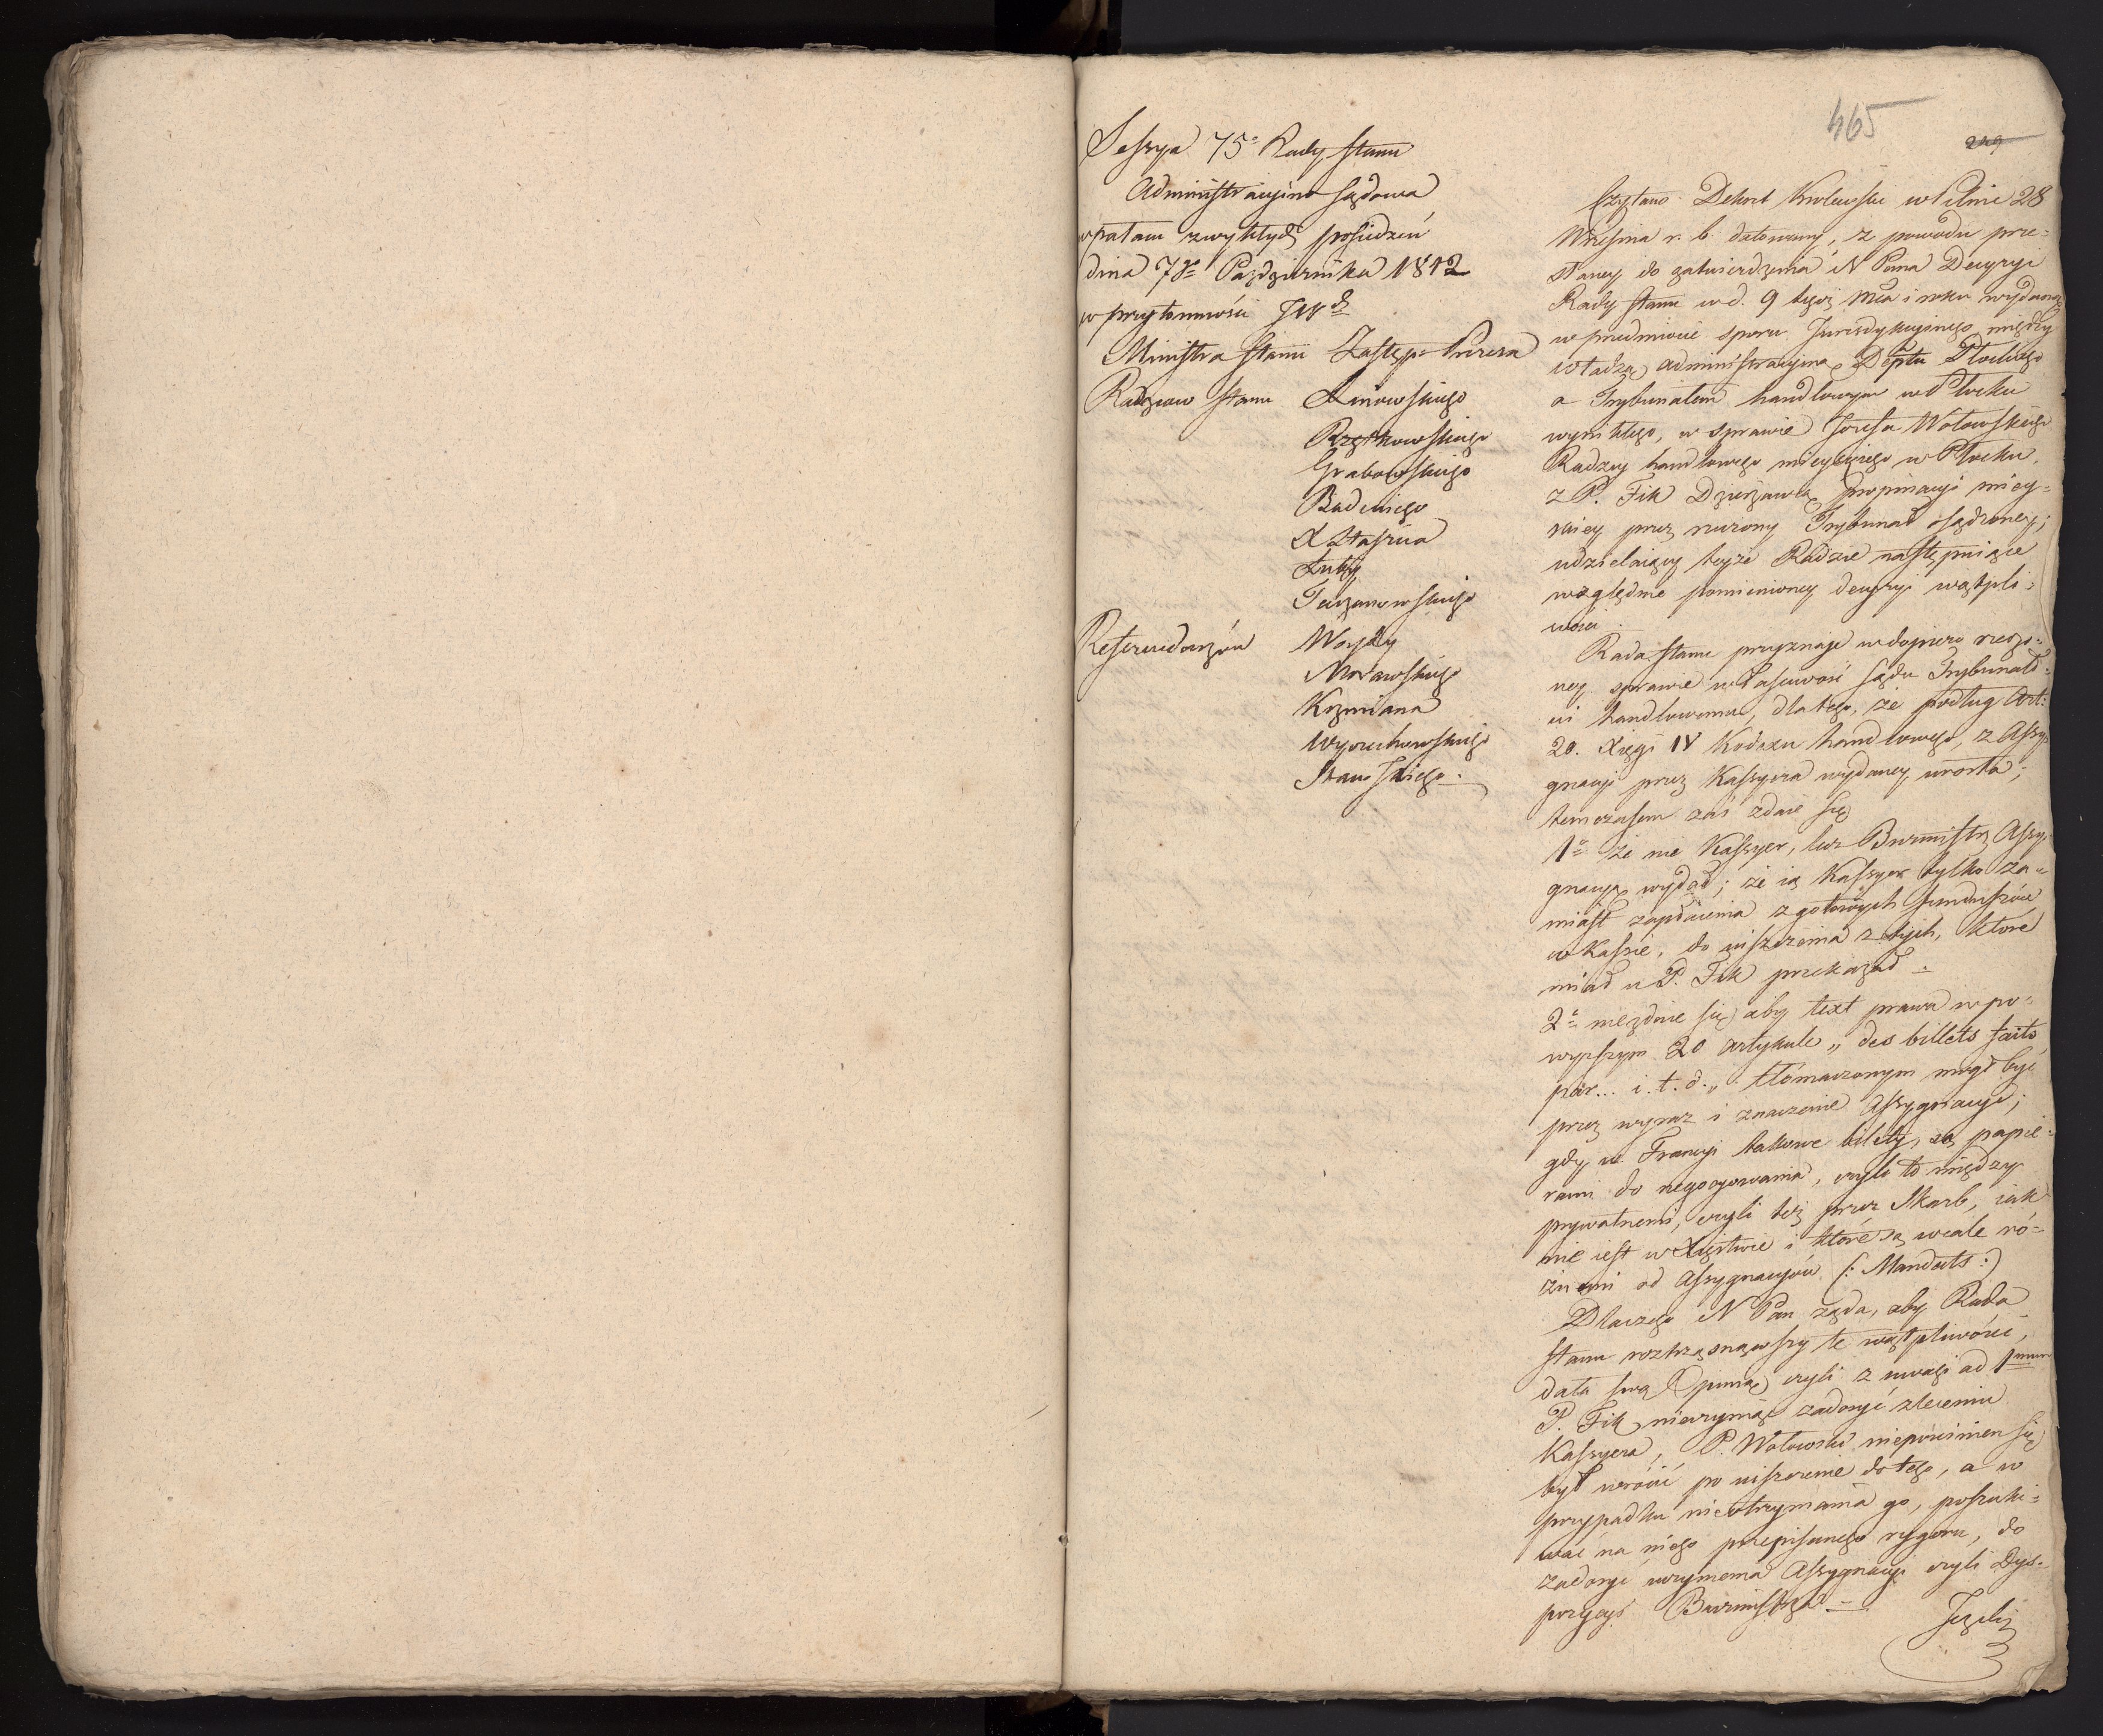 465
249
Sessya 75a Rady Stanu
Administracyjno Sądowa
w pałacu zwykłych posiedzeń
dnia 7go Października 1812
w przytomności JWch
Ministra Stanu Zastęp: Prezesa
Radzców Stanu Linowskiego
Rzętkowskiego
Grabowskiego
Badeniego
X Staszica
Łuby
Tarzanowskiego
Referendarzów Woydy
Morawskiego
Kozmiana
Wyczechowskiego
Stawskiego.
Czytano Dekret Krolewski w Pilnie 28
Września r. b. datowany, z powodu prze-
słaney do zatwierdzenia N Pana Decyzyi
Rady Stanu w d. 9 tegoż Mca i roku wydaney
w przedmiocie sporu Jurisdykcyinego między
władzą administracyjną Deptu Płockiego
a Trybunałem handlowym w Płocku
wynikłego, w sprawie Jozefa Wołowskiego
Radzcy handlowego mieyskiego w Płocku,
z P. Fik Dzierżawcą propinacyi miey-
skiey przez rzeczony Trybunał osądzoney;
udzielaiący teyże Radzie następuiące
względnie pomienioney decyzyi wątpli-
wości.
Rada Stanu przyznaje w dopiero rzeczo-
ney sprawie właściwość Sądu Trybunało-
wi handlowemu, dla tego, że podług Art:
20. Xięgi IV Kodexu handlowego, z Assy-
gnacyi przez Kassyera wydaney urosła;
temczasem zaś zdaie się
1o że nie Kassyer, lecz Burmistrz Assy-
gnacyą wydał; że ią Kassyer tylko za-
miast zapłacenia z gotowych funduszów
w Kassie, do uiszczenia z tych, które
miał u P. Fik przekazał.
2o nie zdaie się aby text prawa w po-
wyższym 20 artykule „des billets faits
par... i. t. d.„ tłómaczonym mógł być
przez wyraz i znaczenie Assygnacye;
gdy w Francyi takowe bilety, są papie-
rami do negocyowania, czyli to między
prywatnemi, czyli też przez Skarb, iak
nie iest w Xięstwie i które są wcale ró-
żnemi od Assygnacyów (: Mandats :)
Dlaczego N Pan żąda, aby Rada
Stanu roztrząsnąwszy te wątpliwości,
dała swą Opinią czyli z uwagi ad 1mum
P. Fik nieczyniąc zadosyć zleceniu
Kassyera, P. Wołowski niepowinien się
był wrócić po uiszczenie do tego, a w
przypadku nieotrzymania go, poszuki-
wać na niego przepisanego rygoru, do
zadosyć uczynienia Assygnacyi czyli Dys-
pozycyi Burmistrza —
Jeżeli